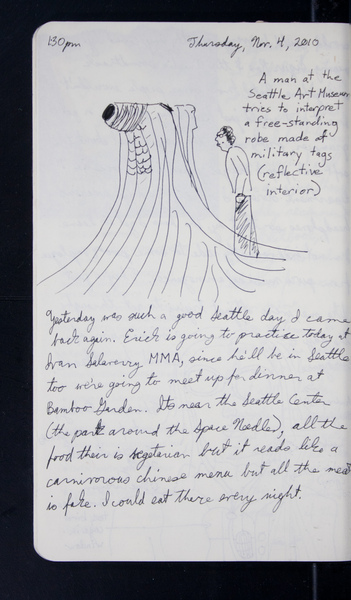 1:30pm
Thursday, Nov. 4, 2010
A man at the
Seattle Art Museum
tries to interpret
a free-standing
robe made of
military tags
(reflective
interior)
Yesterday was such a good Seattle day I came
back again. Erick is going to practice today at
Ivan Salaverry MMA, since he'll be in Seattle
too we're going to meet up for dinner at
Bamboo Garden. Its near the Seattle Center
(the park around the Space Needle), all the
food their is vegetarian but it reads like a
carnivorous chinese menu but all the meat
is fake. I could eat there every night.